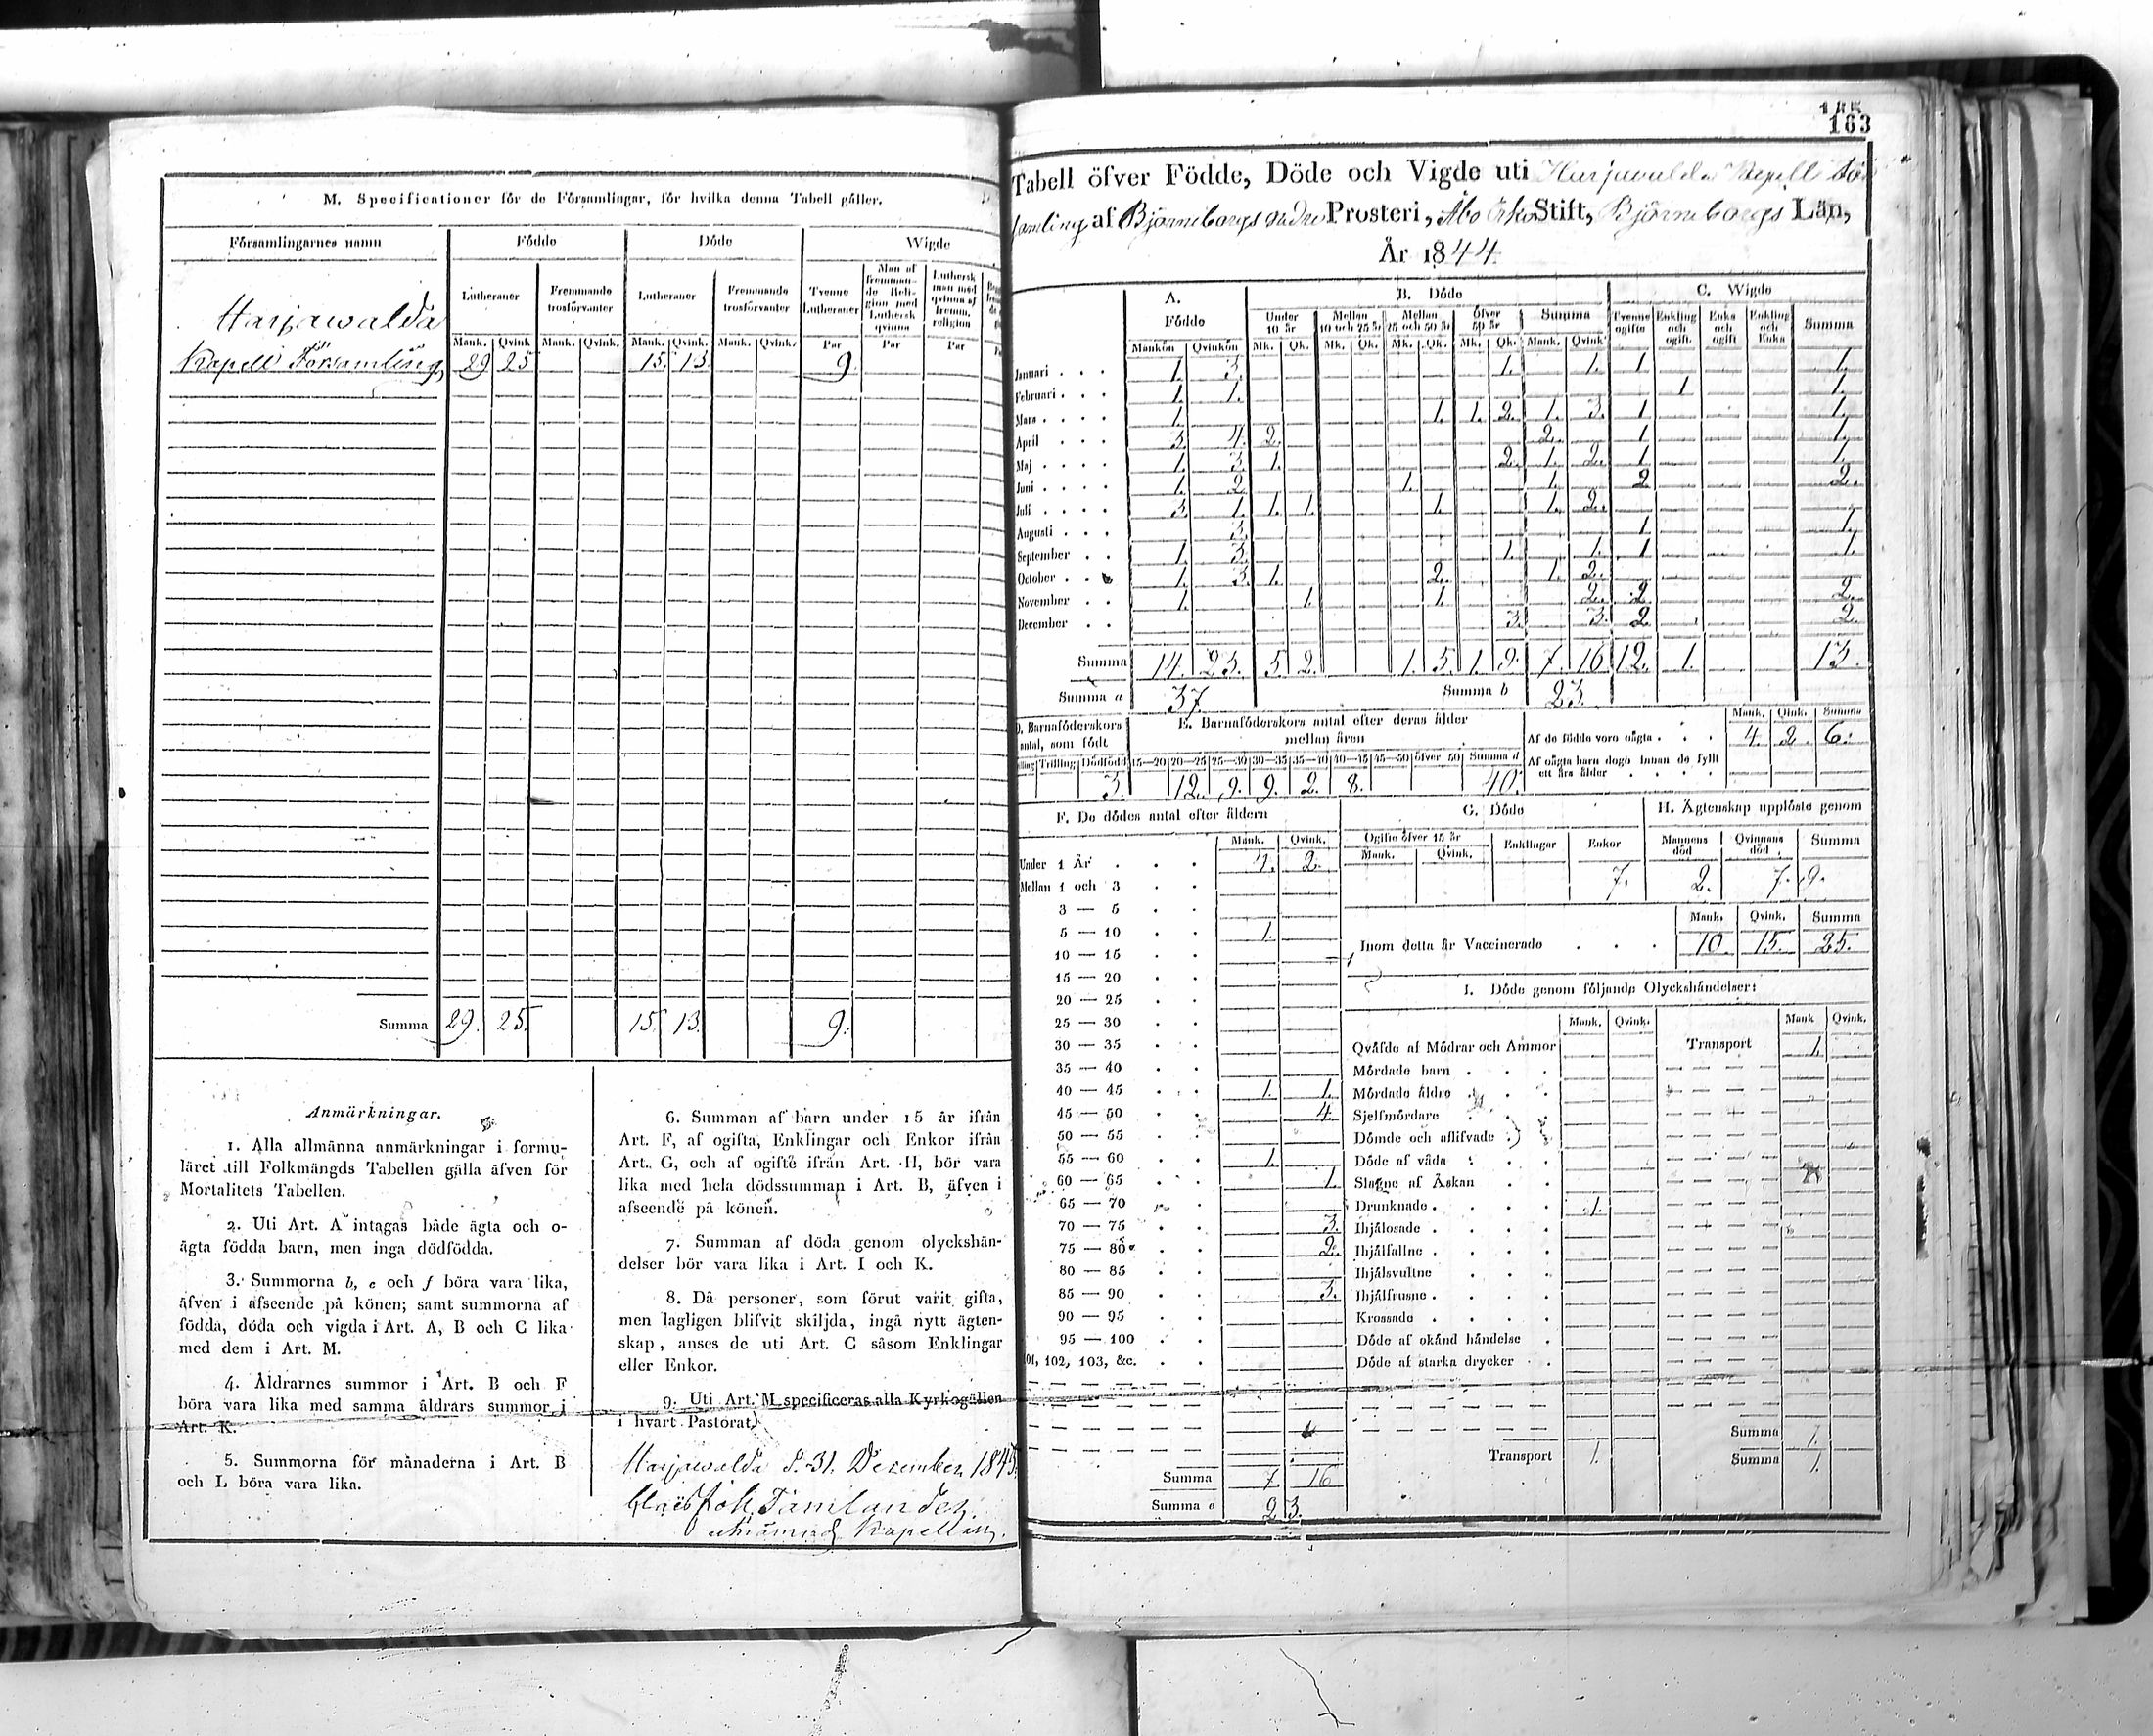 M. Specificationer för de Församlingar, för hvilka denna Tabell gäller.
Församlingarnes namn Födde Döde Wigde
Lutheraner Fremmande trosförvanter Lutheraner Fremmande trosförvanter Tvenne Lutheraner Man af fremmande Religion med Luthersk qvinna Luthersk man med qvinna af fremm. religion
Mank. Qvink Mank. Qvink. Mank. Qvink. Mank. Qvink. Par Par Par
Harjawalda
Kapell Församling 29 25 15. 13. 9.
Summa 29. 25. 15. 13. 9.
Anmärkningar.
1. Alla allmänna anmärkningar i formu-
läret till Folkmängds Tabellen gälla äfven för
Mortalitets Tabellen.
2. Uti Art. A intagas både ägta och o-
ägta födda barn, men inga dödfödda.
3. Summorna b, e och f böra vara lika,
äfven i afseende på könen; samt summorna af
födda, döda och vigda i Art. A, B och C lika
med dem i Art. M.
4. Åldrarnes summor i Art. B och F
böra vara lika med samma åldrars summor i
Art. K.
5. Summorna för månaderna i Art. B
och L böra vara lika.
6. Summan af barn under 15 år ifrån
Art. F, af ogifta, Enklingar och Enkor ifrån
Art. G, och af ogifte ifrån Art. H, bör vara
lika med hela dödssumman i Art. B, äfven i
afseende på könen.
7. Summan af döda genom olyckshän-
delser bör vara lika i Art. I och K.
8. Då personer, som förut varit gifta,
men lagligen blifvit skiljda, ingå nytt ägten-
skap, anses de uti Art. C såsom Enklingar
eller Enkor.
9. Uti Art. M specificeras alla Kyrkogällen
i hvart Pastorat.
Harjawalda d. 31. December 1845
Tamlander.
Kapellan.
163
Tabell öfver Födde, Döde och Vigde uti Harjawalda Kapell För
samling af Björneborgs Prosteri, Åbo Stift, Björneborgs Län,
År 1844.
A. Födde B. Döde C. Wigde
Under 10 år Mellan 10 och 25 år Mellan 25 och 50 år öfver 50 år Summa Tvenne ogifte Enkling och ogift. Enka och ogift Enkling och Enka Summa
Mankön Qvinkön Mk. Qk. Mk. Qk. Mk. Qk. Mk. Qk. Mank. Qvink
Januari . . . 1. 3. 1. 1. 1 1.
Februari . . . 1. 1. 1 1.
Mars . . . . 1. 1. 1. 2. 1. 3. 1 1.
April . . . 3. 4. 2. 2. 1 1.
Maj . . . . 1. 3. 1. 2. 1. 2. 1 1.
Juni . . . . 1. 2. 1. 1. 2 2.
Juli . . . . 3. 1. 1. 1. 1. 1. 2.
Augusti . . . 3. 1 1.
September . . 1. 3. 1. 1. 1 1.
October . . 1. 3. 1. 2. 1. 2.
November . . 1. 1. 1. 2. 2 2.
December . . 3. 3. 2 2.
Summa 14. 23. 5. 2. 1. 5. 1. 9. 7. 16 12. 1. 13.
Summa a 37. Summa b 23.
D. Barnaföderskors antal, som födt E. Barnaföderskors antal efter deras ålder mellan åren Mank. Qink. Summa
Af de födde voro oägta . . . 4. 2. 6.
Trilling Dödfödd 15—20 20—25 25—30 30—35 35—40 40—45 45—50 öfver 50 Summa d
Af oägta barn dogo innan de fyllt ett års ålder
3. 12. 9. 9. 2. 8. 40.
F. De dödes antal efter åldern G. Döde H. Ägtenskap upplöste genom
Mank. Qvink. Ogifte öfver 15 år Mank. Qvink. Enklingar Enkor Mannens död Qvinnans död Summa
Under 1 År . . . 4. 2. 7. 2. 7. 9.
Mellan 1 och 3
3 — 5
5 — 10 1.
10 — 15
15 — 20
20 — 25
25 — 30
30 — 35
35 — 40
40 — 45 1. 1.
45 — 50 4.
50 — 55
55 — 60 1.
60 — 65 1.
65 — 70
70 — 75 3.
75 — 80 2.
80 — 85
85 — 90 3.
90 — 95
95 — 100
101, 102, 103, &c.
Summa 7. 16
Summa e 23.
Mank. Qvink. Summa
Inom detta år Vaccinerade . . . 10. 15. 25.
I. Döde genom följande Olyckshändelser:
Mank. Qvink. Mank Qvink.
Qväfde af Mödrar och Ammor Transport 1.
Mördade barn
Mördade äldre
Sjelfmördare
Dömde och aflifvade
Döde af våda
Slagne af Åskan
Drunknade . . . . 1.
Ihjälosade
Ihjälfallne
Ihjälsvultne
Ihjälfrusne
Krossade
Döde af okänd händelse
Döde af starka drycker
Summa 1.
Transport 1. Summa 1.